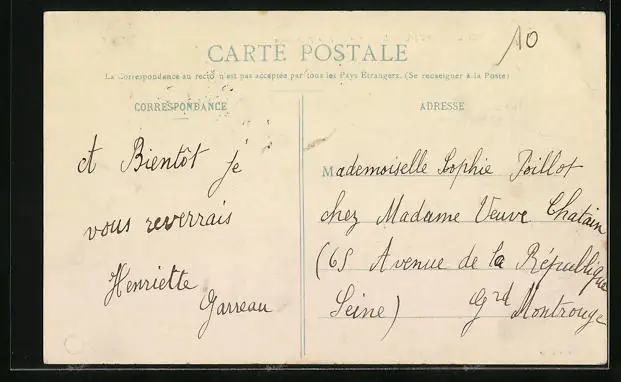 10
CARTE POSTALE
La Correspondance au recto n'est pas acceptée par tous les Pays Étrangers. (Se renseigner à la Poste)
CORRESPONDANCE
ADRESSE
A Bientôt je
vous reverrais
Henriette
Garreau
Mademoiselle Sophie Poillot
chez Madame Veuve Chatain
(65 Avenue de la République
Seine) Grd Montrouge